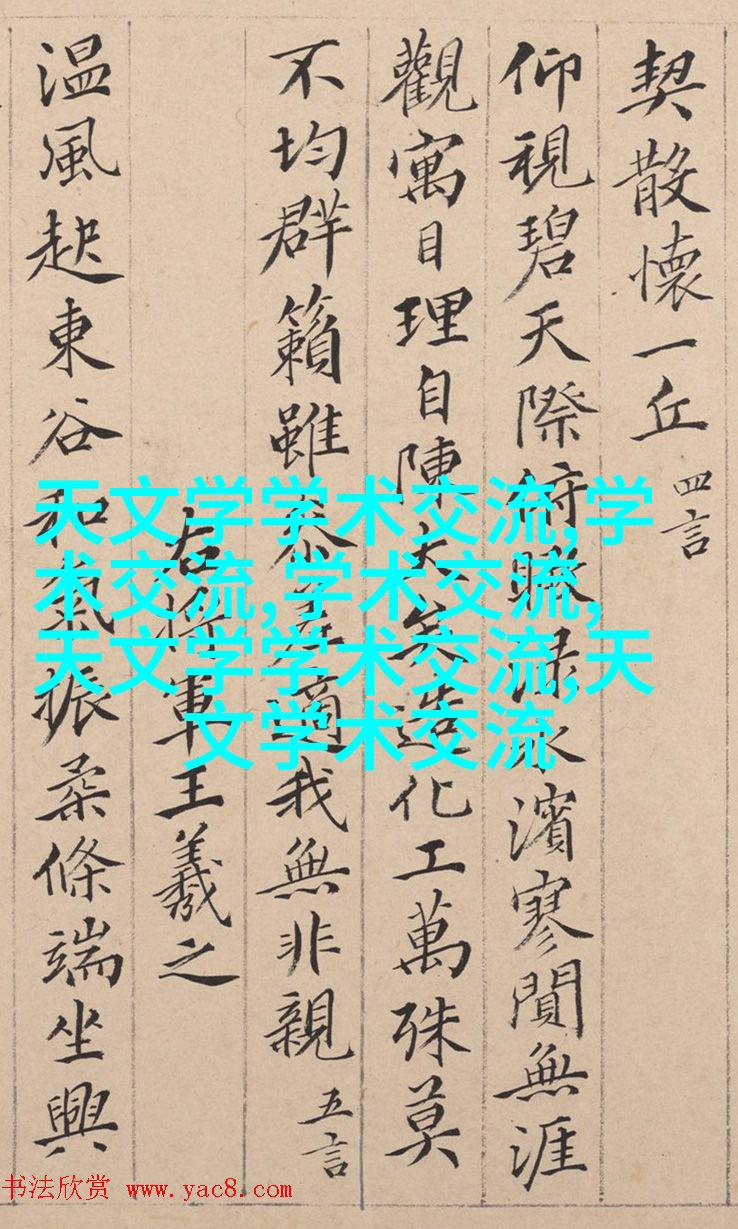 契散懷一丘 四言
仰視碧天際俯瞰淥水濱寥閴無涯
觀寓目理自陳大矣造化工萬殊莫
不均群籟雖參差適我無非親 五言
右將軍王羲之
溫風起東谷和氣振柔條端坐興
天文学学术交流,学
术交流,学术交流,
天文学学术交流,天
文学术交流
书法欣赏 www.yac8.com